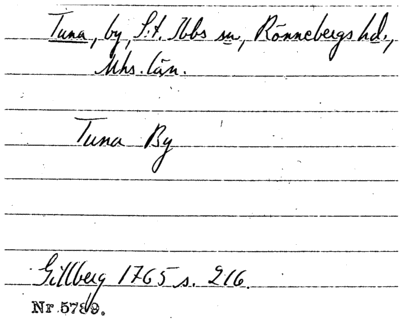 Tuna, by, S:t. Ibbs sn, Rönnebergs hd.,
Mhs. län.
Tuna By
Gillberg 1765 s. 216.
Nr 5789.